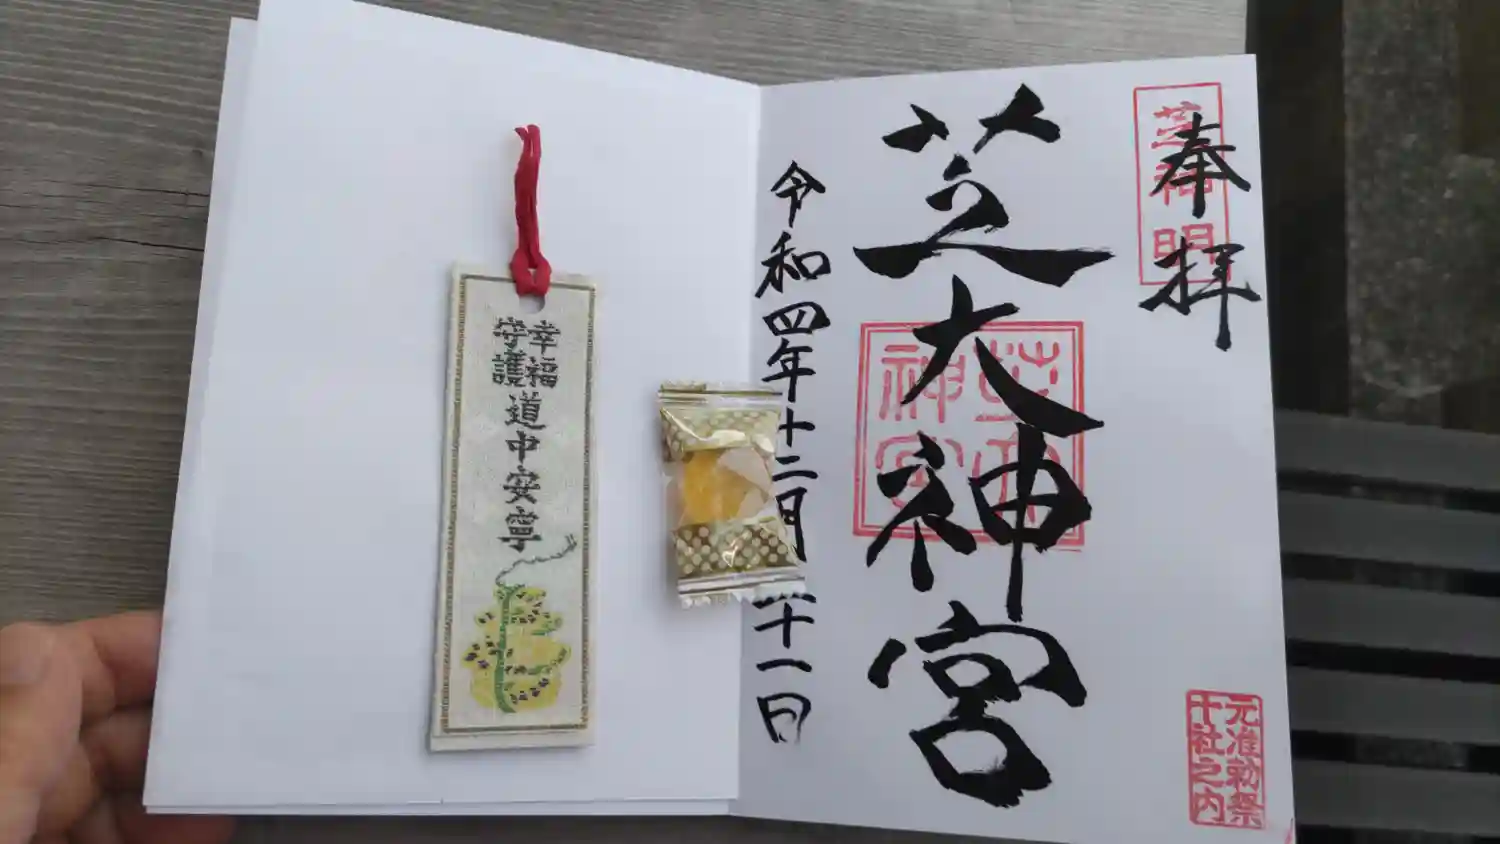 奉拝
芝神明
芝大神宮
芝大神宮
令和四年十二月二十一日
元准勅祭
十社之内
幸福
守護
道中安寧